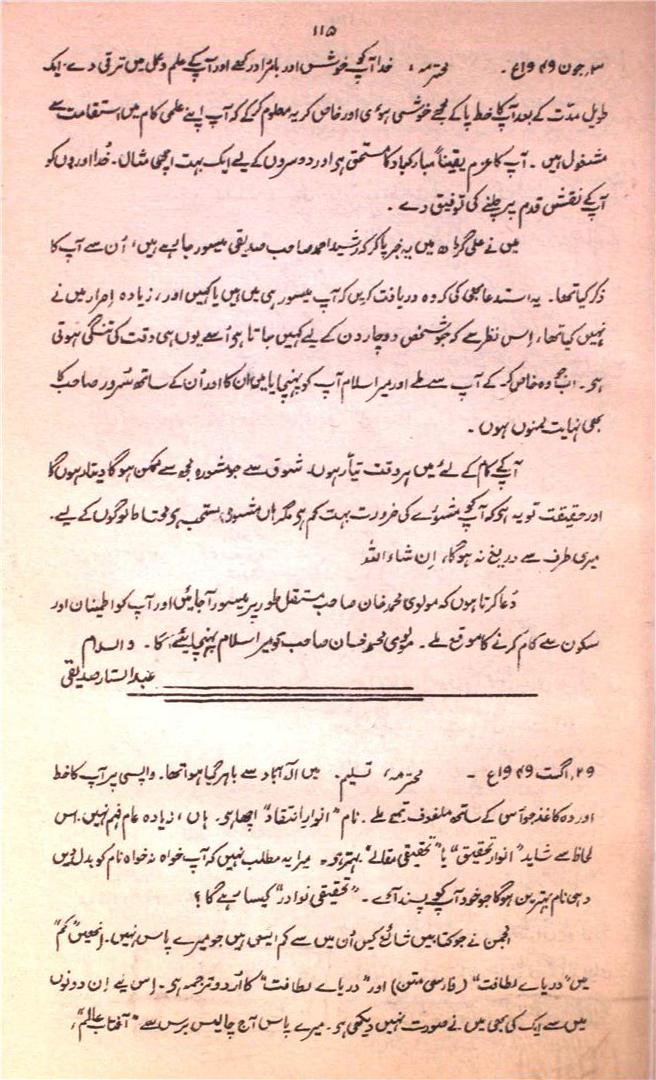 ۱۱۵
۳؍جون ۱۹۴۹ع۔ محترمہ، خدا آپ کو خوش اور بامراد رکھے اور آپ کے علم و عمل میں ترقی دے۔ ایک
طویل مدّت کے بعد آپ کا خط پا کے مجھے خوشی ہوئی اور خاص کر یہ معلوم کر کے کہ آپ اپنے علمی کام میں استقامت سے
مشغول ہیں۔ آپ کا عزم یقیناً مبارکباد کا مستحق ہی اور دوسروں کے لیے ایک بہت اچھی مثال۔ خُدا اوروں کو
آپ کے نقشِ قدم پر چلنے کی توفیق دے۔
میں نے علی گڑھ میں یہ خبر پا کر کہ رشید احمد صاحب صدیقی میسور جا رہے ہیں، اُن سے آپ کا
ذکر کیا تھا۔ یہ استدعا بھی کی کہ وہ دریافت کریں کہ آپ میسور ہی میں ہیں یا کہیں اور، زیادہ اصرار میں نے
نہیں کیا تھا، اِس نظر سے کہ جو شخص دو چار دن کے لیے کہیں جاتا ہی اُسے یوں ہی وقت کی تنگی ہوتی
ہی۔ اب جو وہ خاص کر کے آپ سے ملے اور میرا سلام آپ کو پہنچایا میں ان کا اور اُن کے ساتھ سُرور صاحب کا
بھی نہایت ممنوں ہوں۔
آپ کے کام کے لیے میں ہر وقت تیار ہوں۔ شوق سے جو مشورہ مجھ سے ممکن ہوگا دیتا رہوں گا
اور حقیقت تو یہ ہی کہ آپ کو مشورے کی ضرورت بہت کم ہی مگر ہاں مشورہ مستحب ہی محتاط لوگوں کے لیے۔
میری طرف سے دریغ نہ ہوگا، اِن شاء اللہ
دُعا کرتا ہوں کہ مولوی محمد خان صاحب مستقل طور پر میسور آ جائیں اور آپ کو اطمینان اور
سکون سے کام کرنے کا موقع ملے۔ مولوی محمد خان صاحب کو میرا سلام پہنچائیے گا۔ والسلام
عبدالستار صدیقی
۲۹؍اگست ۱۹۴۹ع۔ محترمہ، تسلیم۔ میں الہ آباد سے باہر گیا ہوا تھا۔ واپسی پر آپ کا خط
اور وہ کاغذ جو اُسی کے ساتھ ملفوف تھے ملے۔ نام "انوارِ انتقاد" اچھا ہی۔ ہاں، زیادہ عام فہم نہیں۔ اس
لحاظ سے شاید "انوارِ تحقیق" یا "تحقیقی مقالے" بہتر ہی۔ میرا یہ مطلب نہیں کہ آپ خواہ نہ خواہ نام کو بدل دیں
وہی نام بہترین ہوگا جو خود آپ کو پسند آئے۔ "تحقیقی نوادر" کیسا رہے گا؟
انجمن نے جو کتابیں شائع کیں اُن میں سے کم ایسی ہیں جو میرے پاس نہیں۔ اِنھیں "کم"
میں "دریاے لطافت" (فارسی متن) اور "دریاے لطافت" کا اُردو ترجمہ ہی۔ اِس لیے اِن دونوں
میں سے ایک کی بھی میں نے صورت نہیں دیکھی ہی۔ میرے پاس آج چالیس برس سے "آفتابِ عالم"،